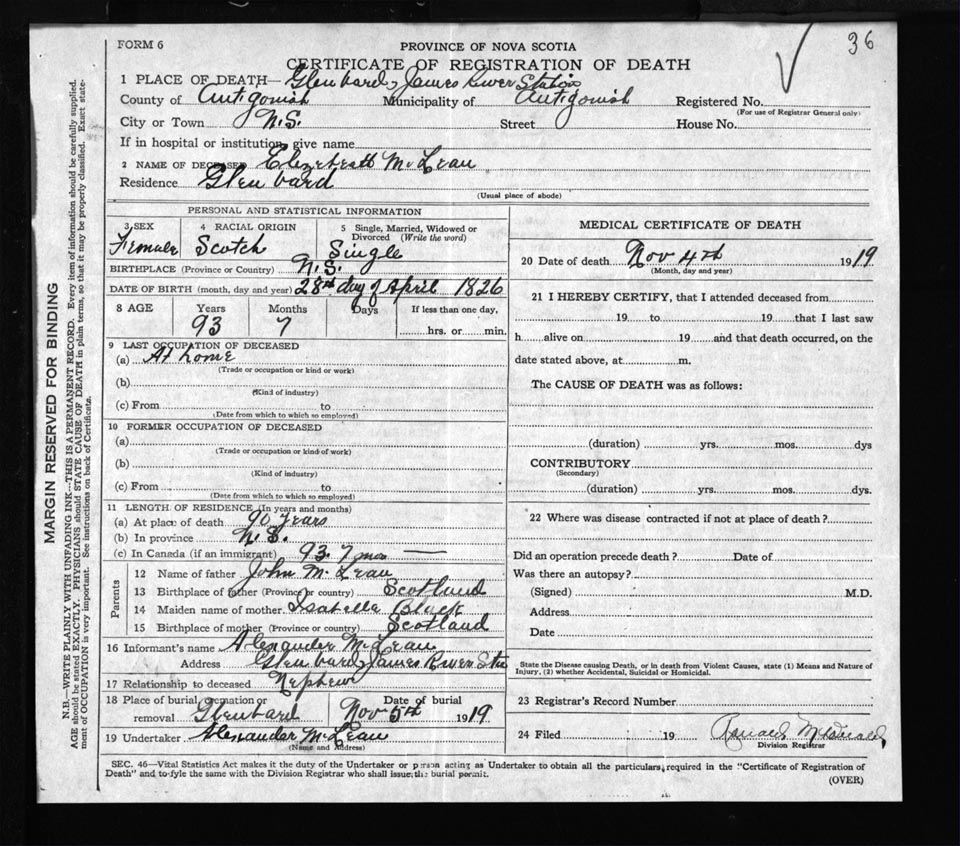 36
FORM 6
PROVINCE OF NOVA SCOTIA
CERTIFICATE OF REGISTRATION OF DEATH
1 PLACE OF DEATH— Glenbard, James River Station
County of Antigonish Municipality of Antigonish Registered No.
(For use of Registrar General only)
City or Town N.S. Street House No.
If in hospital or institution, give name
2 NAME OF DECEASED Elizebeath McLean
Residence Glen bard
(Usual place of abode)
PERSONAL AND STATISTICAL INFORMATION
3 SEX Female
4 RACIAL ORIGIN Scotch
5 Single, Married, Widowed or Divorced (Write the word) Single
BIRTHPLACE (Province or Country) N.S.
DATE OF BIRTH (month, day and year) 28th day of April 1826
8 AGE Years 93 Months 7 Days If less than one day, hrs. or min.
9 LAST OCCUPATION OF DECEASED
(a) At home
(Trade or occupation or kind or work)
(b)
(Kind of industry)
(c) From to
(Date from which to which so employed)
10 FORMER OCCUPATION OF DECEASED
(a)
(Trade or occupation or kind of work)
(b)
(Kind of industry)
(c) From to
(Date from which to which so employed)
11 LENGTH OF RESIDENCE (In years and months)
(a) At place of death 90 years
(b) In province N.S.
(c) In Canada (if an immigrant) 93. 7 mos —
Parents
12 Name of father John McLean
13 Birthplace of father (Province or country) Scotland
14 Maiden name of mother Isabella Black
15 Birthplace of mother (Province or country) Scotland
16 Informant's name Alexander McLean
Address Glen bard, James River Sta
17 Relationship to deceased Nephew
18 Place of burial, cremation or removal Glenbard Date of burial Nov 5th 1919
19 Undertaker Alexander McLean
(Name and Address)
MEDICAL CERTIFICATE OF DEATH
20 Date of death Nov 4th 1919
(Month, day and year)
21 I HEREBY CERTIFY, that I attended deceased from
19 to 19 that I last saw
h alive on 19 and that death occurred, on the
date stated above, at m.
The CAUSE OF DEATH was as follows:
(duration) yrs. mos. dys
CONTRIBUTORY
(Secondary)
(duration) yrs. mos. dys.
22 Where was disease contracted if not at place of death?
Did an operation precede death? Date of
Was there an autopsy?
(Signed) M.D.
Address
Date
State the Disease causing Death, or in death from Violent Causes, state (1) Means and Nature of
Injury, (2) whether Accidental, Suicidal or Homicidal.
23 Registrar's Record Number
24 Filed 19 Ronald McDonald
Division Registrar
SEC. 46—Vital Statistics Act makes it the duty of the Undertaker or person acting as Undertaker to obtain all the particulars required in the "Certificate of Registration of
Death" and to fyle the same with the Division Registrar who shall issue the burial permit.
(OVER)
MARGIN RESERVED FOR BINDING
N.B.—WRITE PLAINLY WITH UNFADING INK—THIS IS A PERMANENT RECORD. Every item of information should be carefully supplied.
AGE should be stated EXACTLY. PHYSICIANS should STATE CAUSE OF DEATH in plain terms, so that it may be properly classified. Exact state-
ment of OCCUPATION is very important. See instructions on back of Certificate.